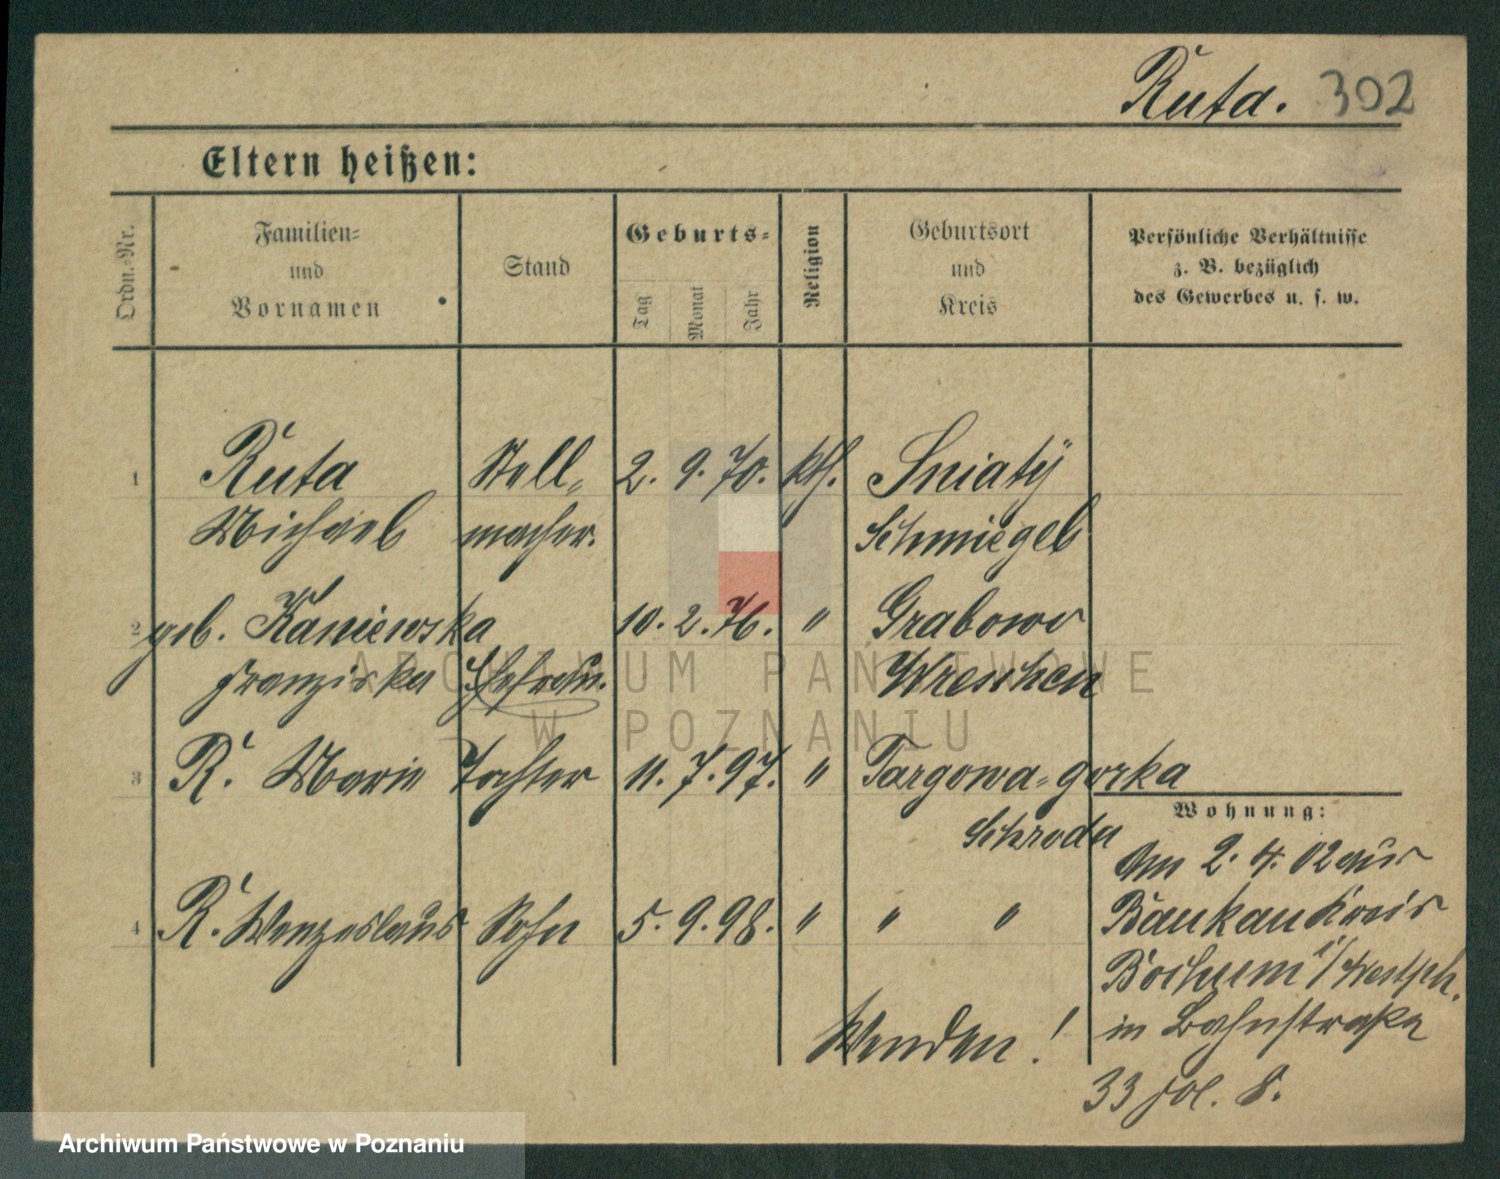 Ruta. 302
Eltern heißen:
Ordn.-Nr.
Familien-
und
Vornamen
Stand
Geburts-
Tag
Monat
Jahr
Religion
Geburtsort
und
Kreis
Persönliche Verhältnisse
z. B. bezüglich
des Gewerbes u. s. w.
1 Ruta Stell- 2. 9. 70. kth. Sniaty
Michael macher. Schmiegel
2 geb. Kaniewska 10. 2. 76. " Grabowo
Franziska Ehefrau. Wreschen
3 R. Marie Tochter 11. 7. 97. " Targowa-gorka
Schroda
4 R. Wenzeslaus Sohn 5. 9. 98. " " "
Wenden!
Wohnung:
Am 2. 4. 02 aus
Baukau Kreis
Bochum i/Westph.
in Bahnstraße
33 fol. 8.
ARCHIWUM PAŃSTWOWE
W POZNANIU
Archiwum Państwowe w Poznaniu